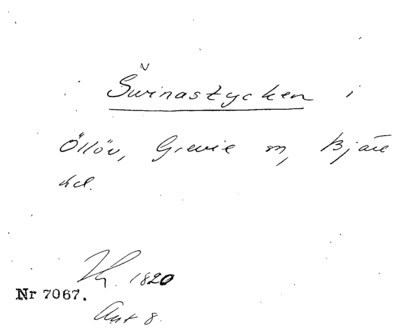 Svinastycken i
Öllöv, Grevie sn, Bjäre
hd.
1820
Nr 7067.
Akt 8.